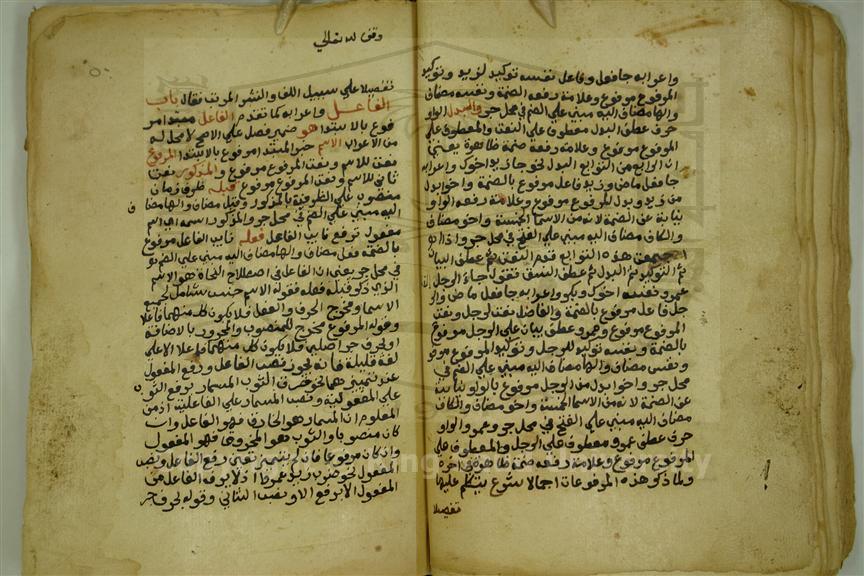 واعرابه جا فعل وفاعل نفسه توكيد لزيد وتوكيد
المرفوع مرفوع وعلامة رفعه الضمة ونفسه مضاف
والها مضاف اليه مبني علي الضم في محل جر والبدل الواو
حرف عطف البدل معطوف علي النعت والمعطوف علي
المرفوع مرفوع وعلامة رفعه ضمة ظاهرة يعني
ان الرابع من التوابع البدل نحو جا زيد اخوك واعرابه
جا فعل ماض وزيد فاعل مرفوع بالضمة واخو بدل
من زيد وبدل المرفوع مرفوع وعلامة رفعه الواو
نيابة عن الضمة لانه من الاسما الخمسة واخو مضاف
والكاف مضاف اليه مبني علي الفتح في محل جر واذا
اجتمعت هذه التوابع قدم النعت ثم عطف البيان
ثم التوكيد ثم البدل ثم عطف النسق تقول جاء الرجل
عمرو نفسه اخوك وبكر واعرابه جا فعل ماض والر
جل فاعل مرفوع بالضمة والفاضل نعت للرجل ونعت
المرفوع مرفوع وعمرو عطف بيان علي الرجل مرفوع
بالضمة ونفسه توكيد للرجل وتوكيد المرفوع مرفوع
ونفس مضاف والها مضاف اليه مبني علي الضم في
محل جر واخو بدل من الرجل مرفوع بالواو نيابة
عن الضمة لانه من الاسما الخمسة واخو مضاف والكاف
مضاف اليه مبني علي الفتح في محل جر وعمرو والواو
حرف عطف عمرو معطوف علي الرجل والمعطوف علي
المرفوع مرفوع وعلامة رفعه ضمة ظاهرة في اخره
ولما ذكر هذه المرفوعات اجمالا شرع يتكلم عليها
تفصيلا
وقف لله تعالي
تفصيلا علي سبيل اللف والنشر المرتب فقال باب
الفاعل واعرابه كما تقدم الفاعل مبتدا مر
فوع بالابتدا هو ضمير فصل علي الاصح لا محل له
من الاعراب الاسم خبر المبتدا مرفوع بالابتدا المرفوع
نعت للاسم ونعت المرفوع مرفوع والمذكور نعت
ثاني للاسم ونعت المرفوع مرفوع قبله ظرف زمان
منصوب علي الظرفية بالمذكور وقبل مضاف والها مضاف
اليه مبني علي الضم في محل جر والمذكور اسمه اسم
مفعول ترفع نايب الفاعل فعله نايب الفاعل مرفوع
بالضمة فعل مضاف والها مضاف اليه مبني علي الضم
في محل جر يعني ان الفاعل في اصطلاح النحاة هو الاسم
الذي ذكر قبله فعله فقوله الاسم جنس شامل لجميع
الاسما ومخرج الحرف والفعل فلا يكون كل منهما فاعلا
وقوله المرفوع مخرج للمنصوب والمجرور بالاضافة
او لحرف جر اصلي فلا يكون كل منهما فاعلا الا علي
لغة قليلة فانه يجوز نصب الفاعل ورفع المفعول
عند تمييزهما نحو خرق الثوب المسمار برفع الثوب
علي المفعولية ونصب المسمار علي الفاعلية اذ من
المعلوم ان المسمار هو الخارق فهو الفاعل وان
كان منصوبا والثوب هو المخروق فهو المفعول
وان كان مرفوعا فان لم يتميز تعين رفع الفاعل ونصب
المفعول نحو ضرب زيد عمرا اذ لا يعرف الفاعل من
المفعول الا برفع الاول ونصب الثاني وقوله بحرف جر